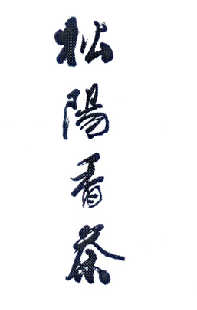 松陽香茶